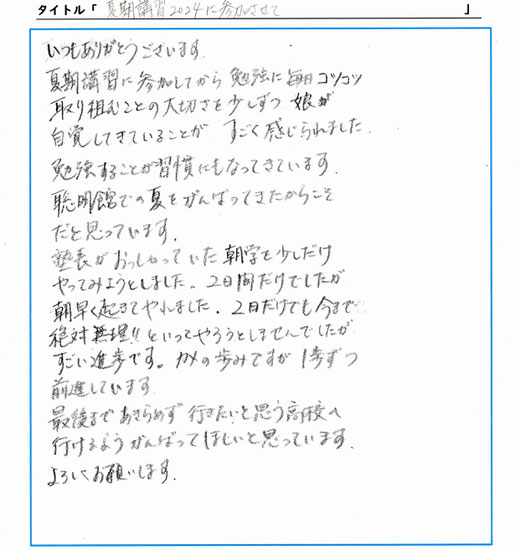 タイトル「 夏期講習2024に参加させて 」
いつもありがとうございます。
夏期講習に参加してから勉強に毎日コツコツ
取り組むことの大切さを少しずつ 娘が
自覚してきていることが すごく感じられました。
勉強することが習慣にもなってきています。
聡明館での夏をがんばってきたからこそ
だと思っています。
塾長がおっしゃっていた朝学を少しだけ
やってみようとしました。2日間だけでしたが
朝早く起きてやれました。2日だけでも今まで
絶対無理!!といってやろうとしませんでしたが
すごい進歩です。カメの歩みですが 1歩ずつ
前進しています。
最後まであきらめず 行きたいと思う高校へ
行けるようがんばってほしいと思っています。
よろしくお願いします。